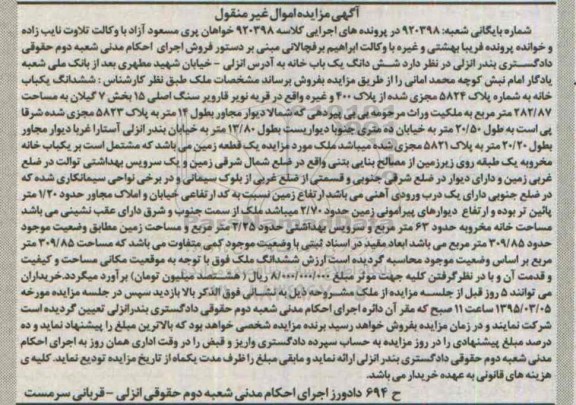 آگهی مزایده اموال غیر منقول
شماره بایگانی شعبه: ۹۲۰۳۹۸ در پرونده های اجرایی کلاسه ۹۲۰۳۹۸ خواهان پری مسعود آزاد با وکالت تلاوت نایب زاده
و خوانده پرونده فریبا بهشتی و غیره با وکالت ابراهیم برفچالانی مبنی بر دستور فروش اجرای احکام مدنی شعبه دوم حقوقی
دادگستری بندر انزلی در نظر دارد شش دانگ یک باب خانه به آدرس انزلی - خیابان شهید مطهری بعد از بانک ملی شعبه
یادگار امام نبش کوچه محمد امانی را از طریق مزایده بفروش برساند مشخصات ملک طبق نظر کارشناس : ششدانگ یکباب
خانه به شماره پلاک ۵۸۲۴ مجزی شده از پلاک ۴۰۰ و غیره واقع در قریه نویر قارویر سنگ اصلی ۱۵ بخش ۷ گیلان به مساحت
۲۸۲/۸۷ متر به ملکیت وراث مرحوم بی بی پیردهی که شمالا دیوار مجاور بطول ۱۴ متر به پلاک ۵۸۲۳ مجزی شده شرقا
پی است به طول ۲۰/۵۰ متر به خیابان ده متری جنوبا دیواریست بطول ۱۳/۸۰ متر به خیابان بندر انزلی آستارا غربا دیوار مجاور
بطول ۲۰/۲۰ متر به پلاک ۵۸۲۱ مجزی شده میباشد ملک مورد مزایده یک قطعه زمین می باشد که مشتمل است بر یکباب خانه
مخروبه یک طبقه روی زیرزمین از مصالح بنایی بتنی واقع در ضلع شمال شرقی زمین و یک سرویس بهداشتی توالت در ضلع
غربی زمین و دارای دیوار در ضلع شرقی جنوبی و قسمتی از ضلع غربی از بلوک سیمانی و در برخی نواحی سیمانکاری شده که
در ضلع جنوبی دارای یک درب ورودی آهنی می باشد ارتفاع زمین نسبت به کد ارتفاعی خیابان و املاک مجاور حدود ۱/۲۰ متر
پائین تر بوده و ارتفاع دیوارهای پیرامونی زمین حدود ۲/۷۰ میباشد ملک از سمت جنوب و شرق دارای عقب نشینی می باشد
مساحت خانه مخروبه حدود ۶۳ متر مربع و سرویس بهداشتی حدود ۳/۲۵ متر مربع و مساحت زمین مطابق وضعیت موجود
حدود ۳۰۹/۸۵ متر مربع می باشد ابعاد مقید در اسناد ثبتی با وضعیت موجود کمی متفاوت می باشد که مساحت ۳۰۹/۸۵ متر
مربع بر اساس وضعیت موجود محاسبه گردیده است ارزش ششدانگ ملک فوق با توجه به موقعیت مکانی مساحت و کیفیت
و قدمت آن و با در نظر گرفتن کلیه جهات موثر مبلغ ۸/۰۰۰/۰۰۰/۰۰۰ ریال ( هشتصد میلیون تومان) برآورد میگردد.خریداران
می توانند ۵ روز قبل از جلسه مزایده از ملک مشروحه ذیل به نشانی فوق الذکر بالا بازدید سپس در جلسه مزایده مورخه
۱۳۹۵/۰۳/۰۵ ساعت ۱۱ صبح که مقر آن دائره اجرای احکام مدنی شعبه دوم حقوقی دادگستری بندرانزلی تعیین گردیده است
شرکت نمایند و در زمان مزایده بفروش خواهد رسید برنده مزایده شخصی خواهد بود که بالاترین مبلغ را پیشنهاد نماید و ده
درصد مبلغ پیشنهادی را در روز مزایده به حساب سپرده دادگستری واریز و قبض را در وقت اداری همان روز به اجرای احکام
مدنی شعبه دوم حقوقی دادگستری بندر انزلی ارائه نماید و مابقی مبلغ را ظرف مدت یکماه از تاریخ مزایده تودیع نماید. کلیه ی
هزینه های قانونی به عهده خریدار می باشد.
ح ۶۹۴ دادورز اجرای احکام مدنی شعبه دوم حقوقی انزلی - قربانی سرمست